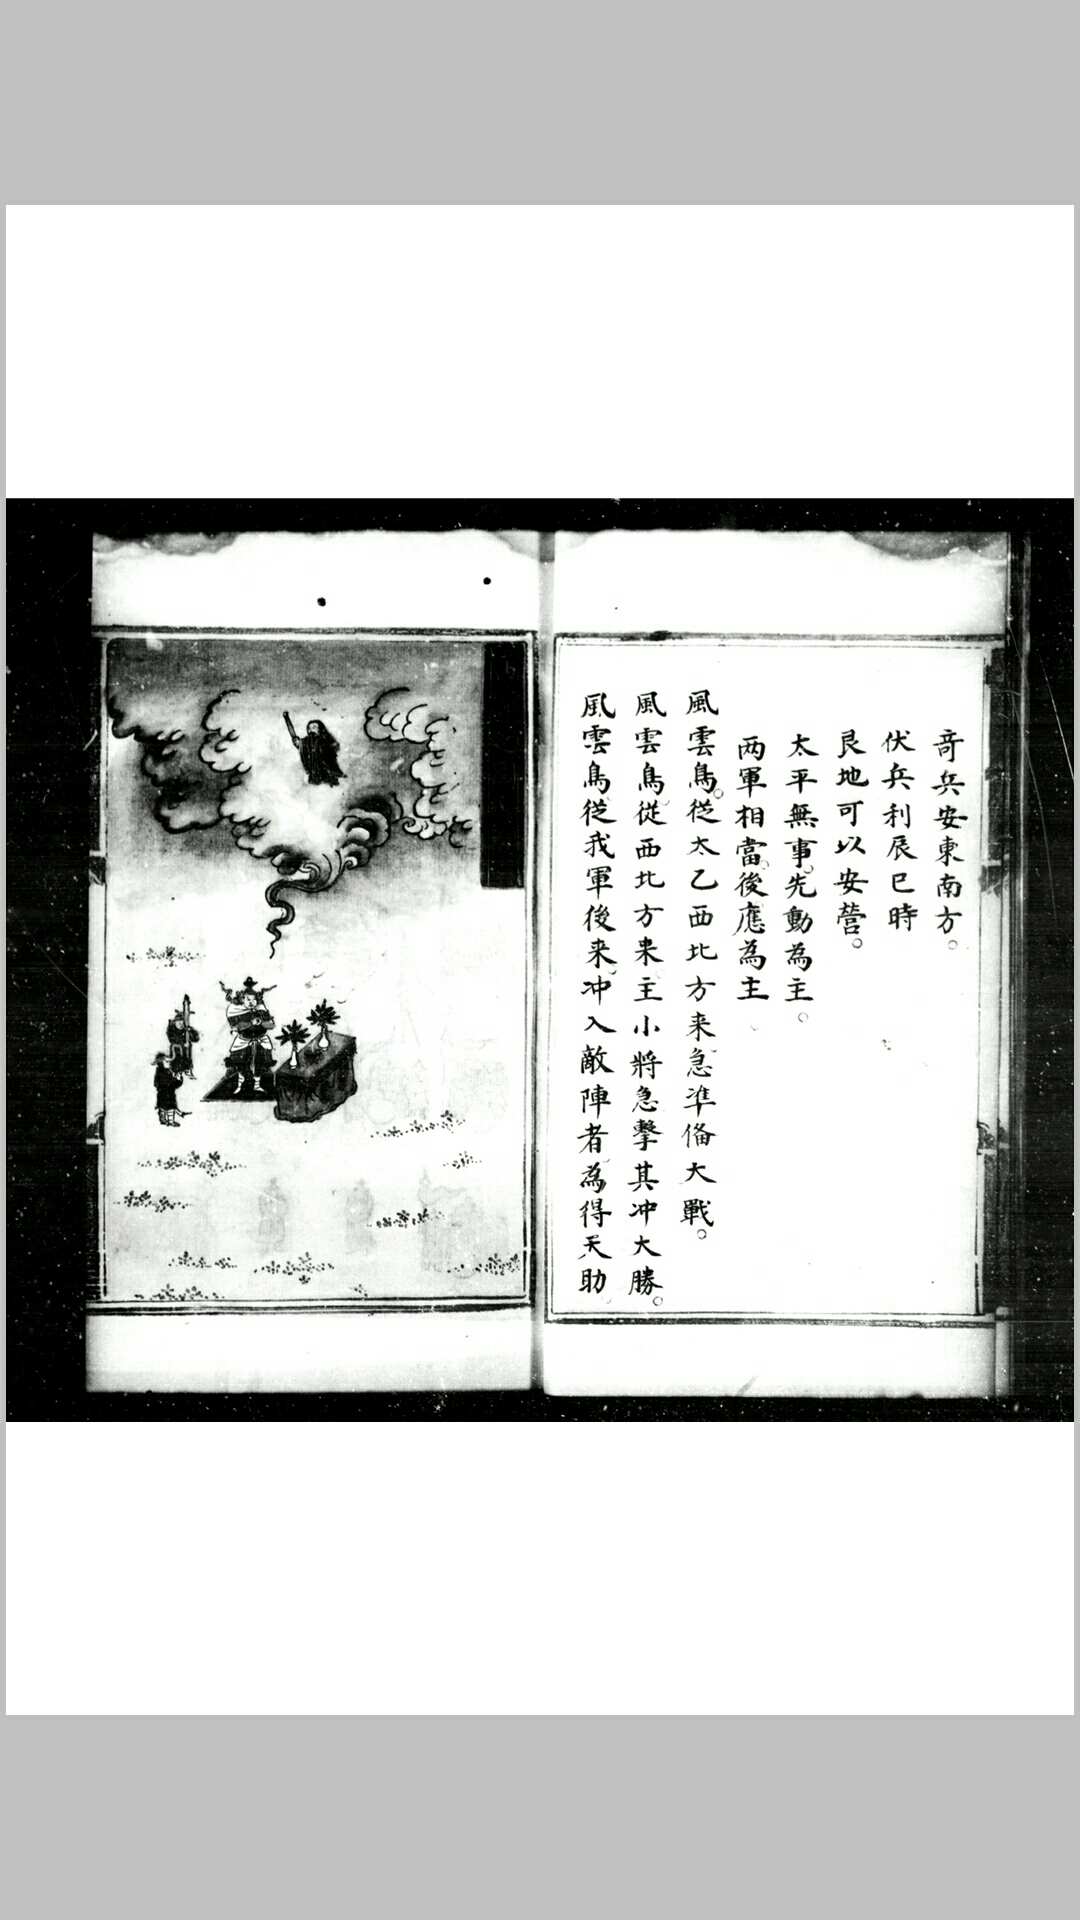 竒兵安東南方。
伏兵利辰巳時
艮地可以安營。
太平無事。先動為主。
两軍相當。後應為主
風雲鳥。從太乙西北方来急準俻大戰。
風雲鳥從西北方来主小將急擊其冲大勝。
風雲鳥從我軍後来冲入敵陣者為得天助